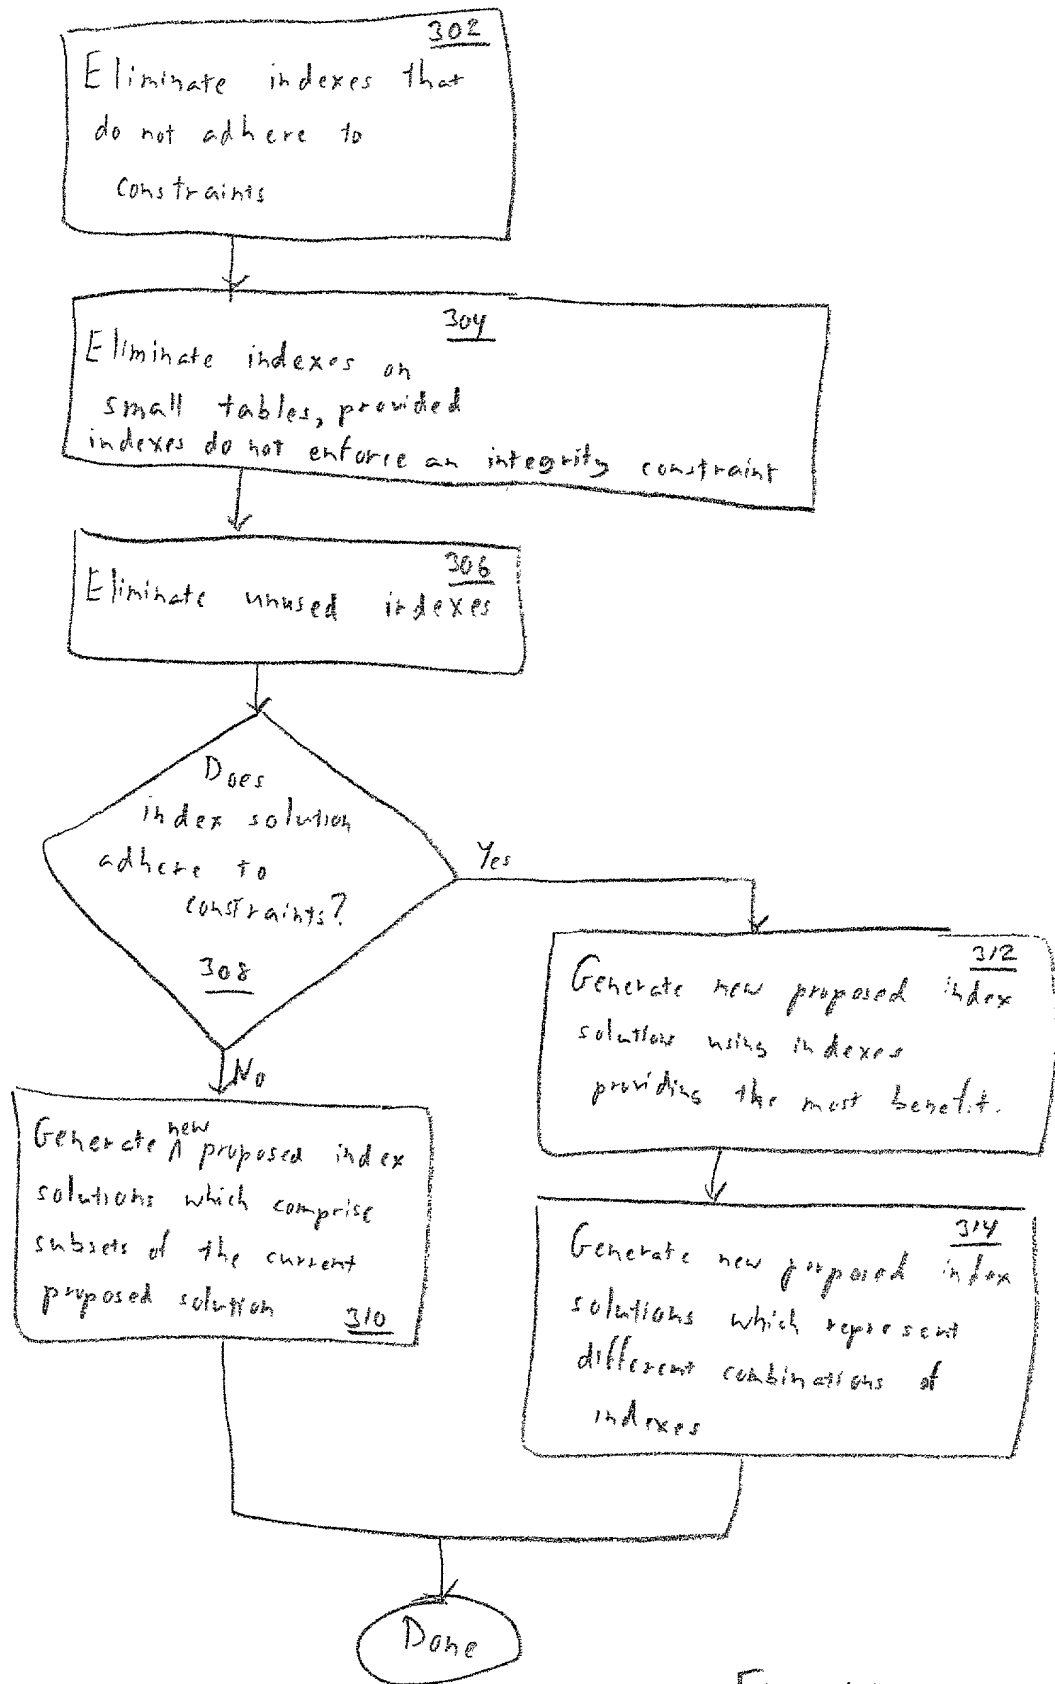 302
Eliminate indexes that
do not adhere to
constraints
304
Eliminate indexes on
small tables, provided
indexes do not enforce an integrity constraint
306
Eliminate unused indexes
Does
index solution
adhere to
constraints?
308
Yes
No
Generate new proposed index
solutions which comprise
subsets of the current
proposed solution
310
312
Generate new proposed index
solution using indexes
providing the most benefit.
314
Generate new proposed index
solutions which represent
different combinations of
indexes
Done